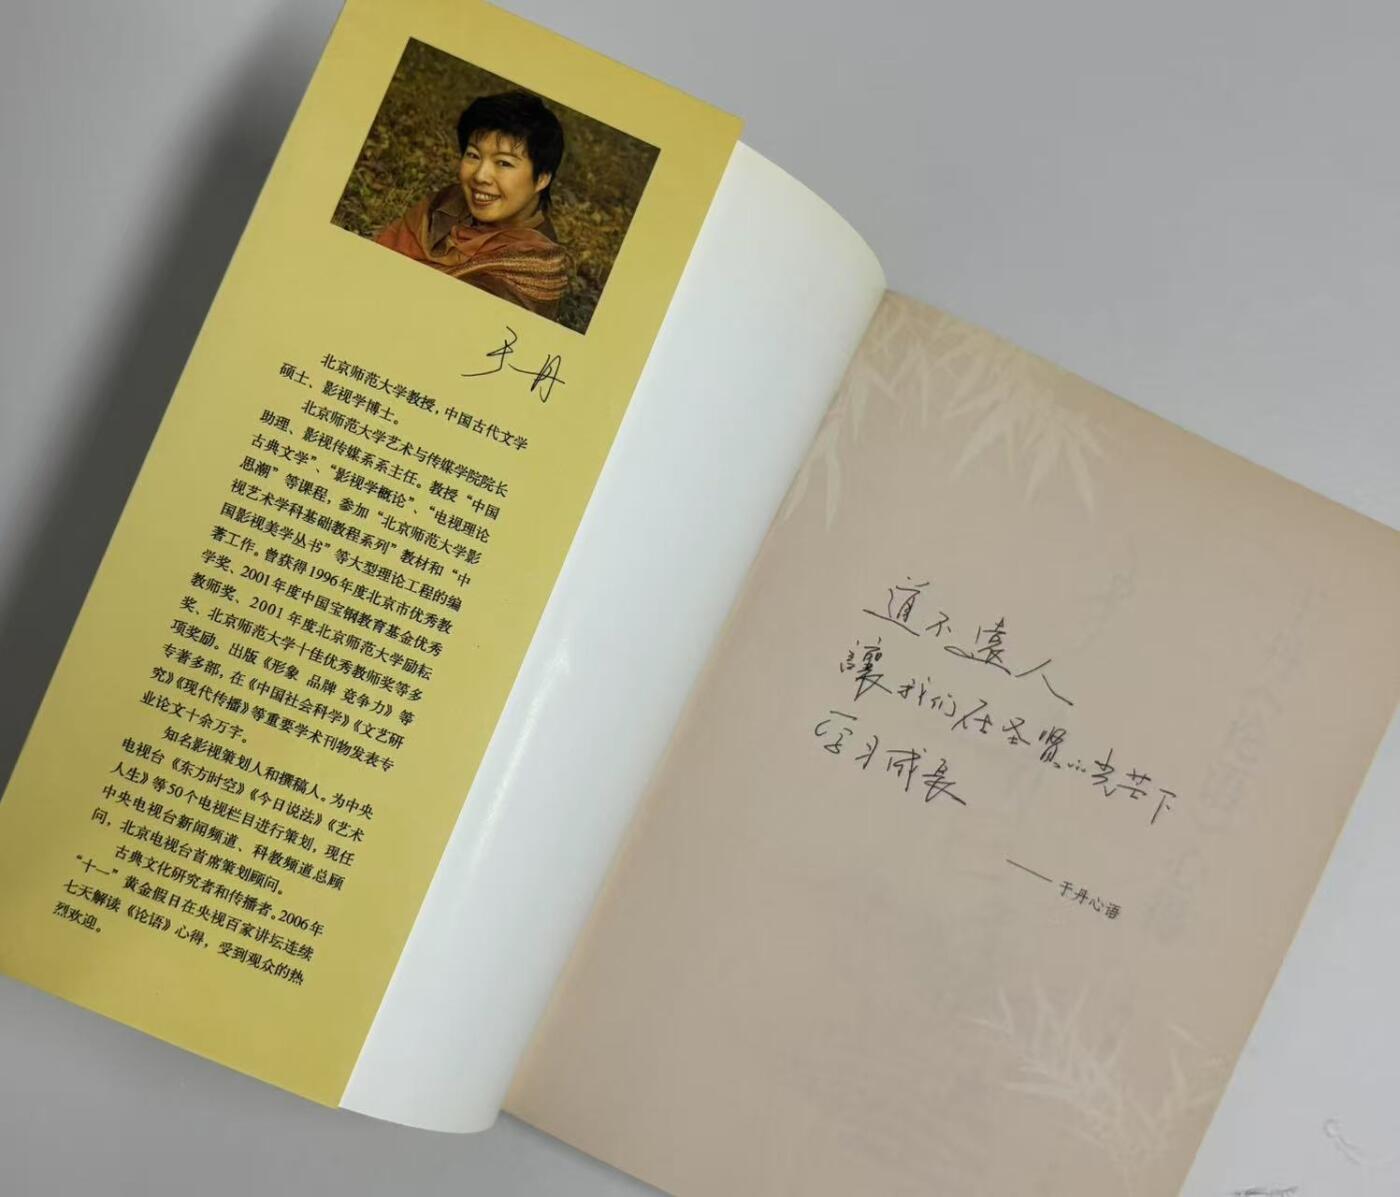 于丹
北京师范大学教授，中国古代文学
硕士、影视学博士。
北京师范大学艺术与传媒学院院长
助理、影视传媒系系主任。教授“中国
古典文学”、“影视学概论”、“电视理论
思潮”等课程，参加“北京师范大学影
视艺术学科基础教程系列”教材和“中
国影视美学丛书”等大型理论工程的编
著工作。曾获得1996年度北京市优秀教
学奖、2001年度中国宝钢教育基金优秀
教师奖、2001年度北京师范大学励耘
奖、北京师范大学十佳优秀教师奖等多
项奖励。出版《形象 品牌 竞争力》等
专著多部，在《中国社会科学》《文艺研
究》《现代传播》等重要学术刊物发表专
业论文十余万字。
知名影视策划人和撰稿人。为中央
电视台《东方时空》《今日说法》《艺术
人生》等50个电视栏目进行策划，现任
中央电视台新闻频道、科教频道总顾
问，北京电视台首席策划顾问。
古典文化研究者和传播者。2006年
“十一”黄金假日在央视百家讲坛连续
七天解读《论语》心得，受到观众的热
烈欢迎。
道不遠人
讓我们在圣贤的光芒下
学习成長
——于丹心语